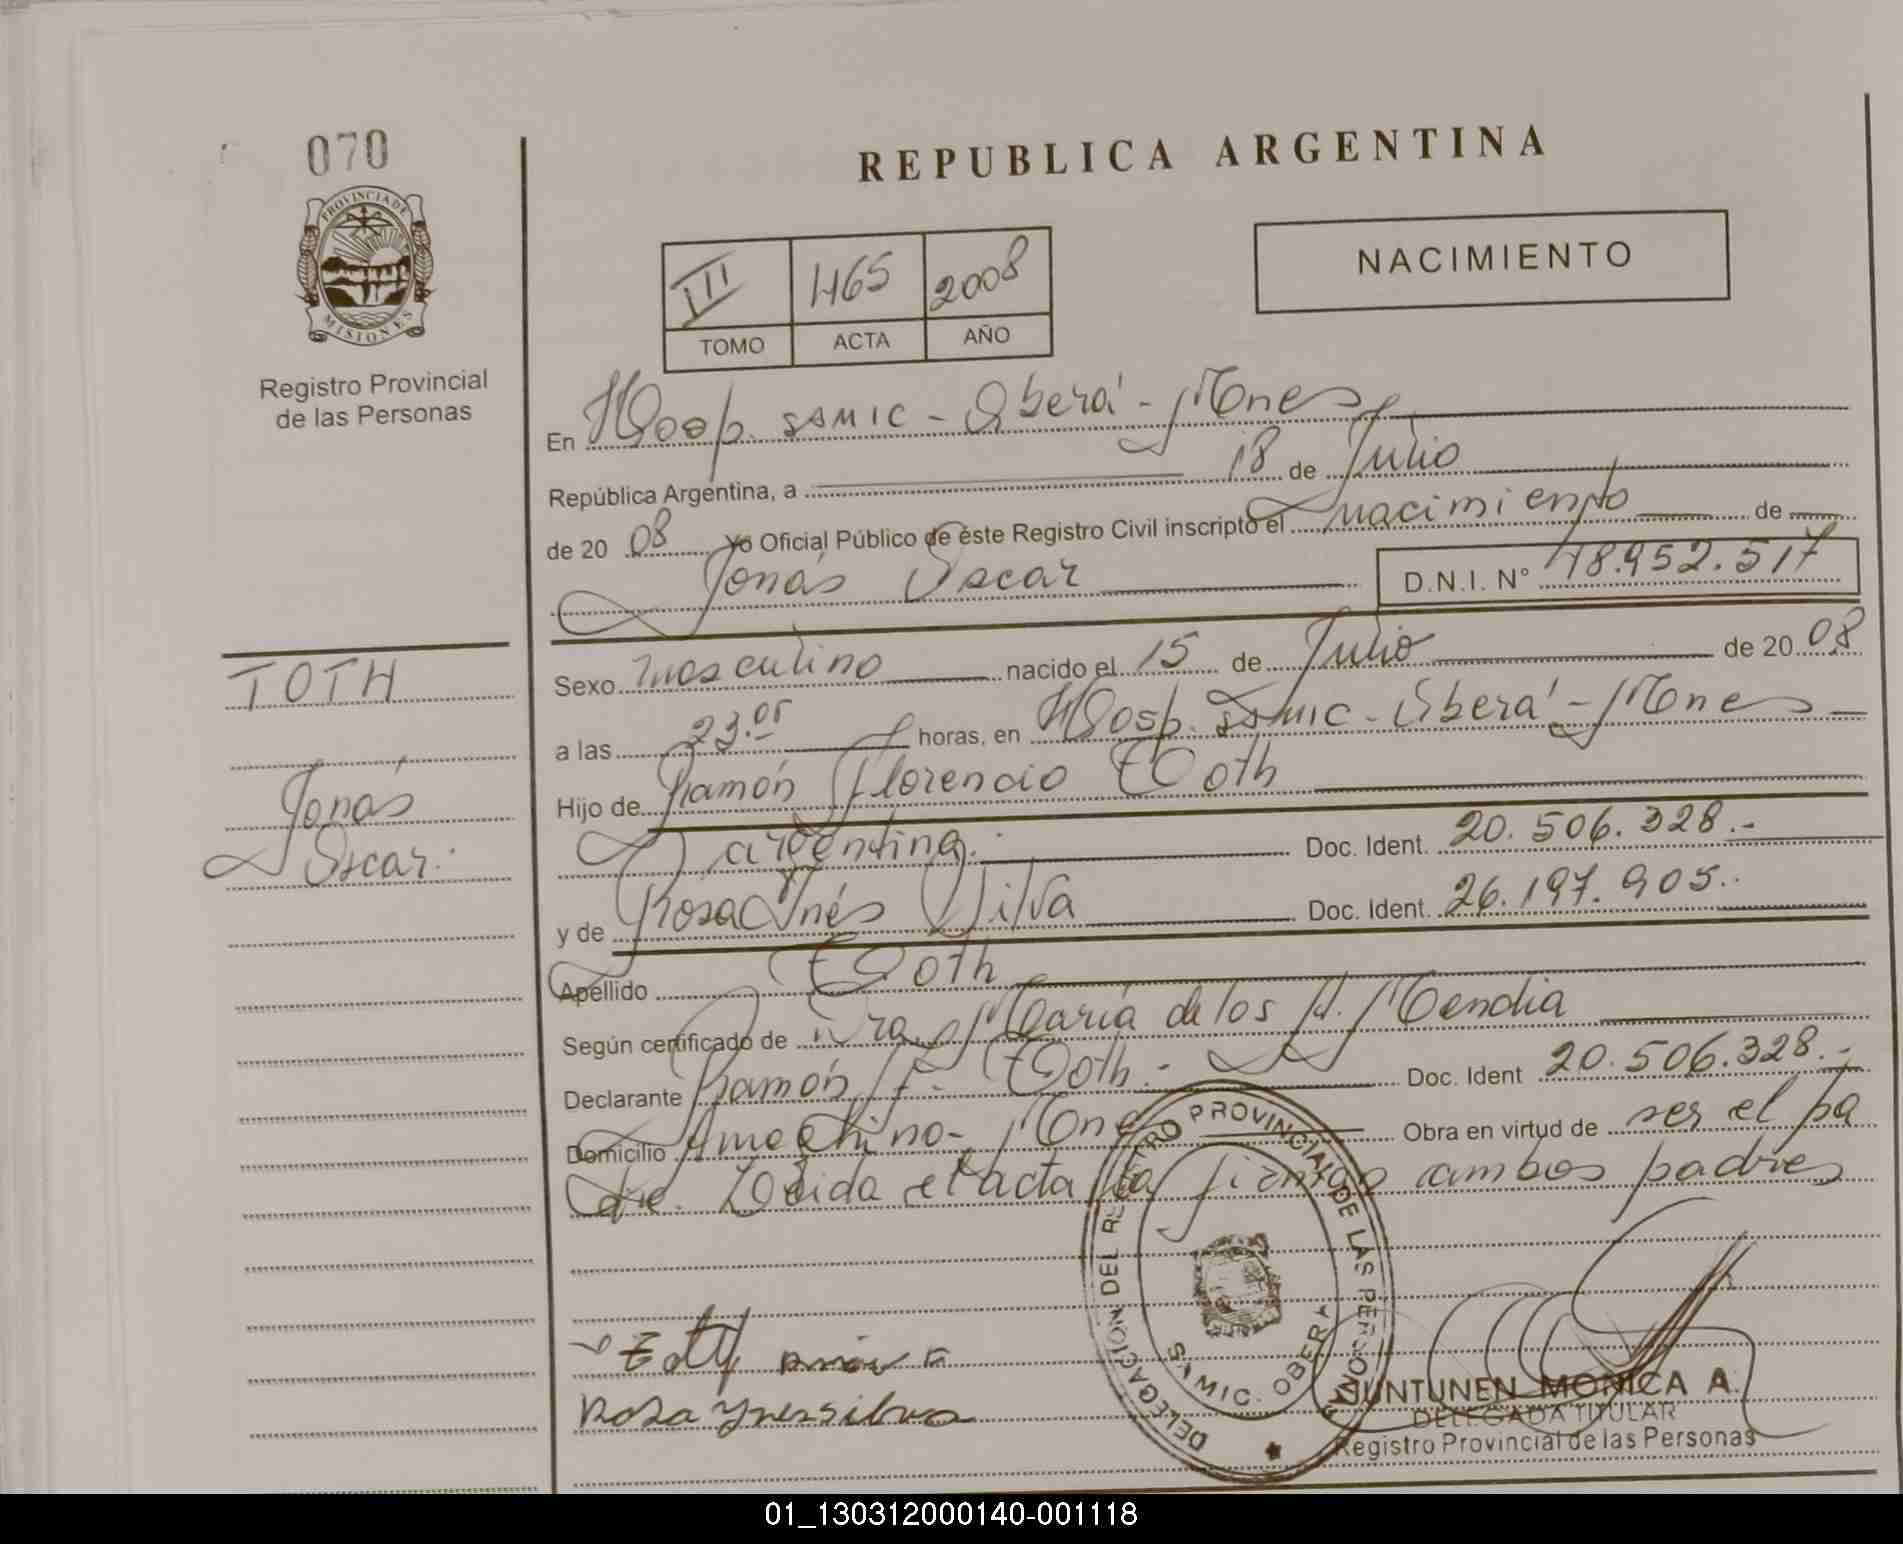 070
PROVINCIA DE
MISIONES
Registro Provincial
de las Personas
REPUBLICA ARGENTINA
III 465 2008
TOMO ACTA AÑO
NACIMIENTO
En Hosp. SAMIC - Oberá - Mnes
República Argentina, a 18 de Julio
de 20 08 Yo Oficial Público de este Registro Civil inscripto el nacimiento de
Jonás Oscar D.N.I. Nº 48.952.517
TOTH
Jonás
Oscar.
Sexo masculino nacido el 15 de Julio de 20 08
a las 23.05 horas, en Hosp. SAMIC - Oberá - Mnes
Hijo de Ramón Florencio Toth
argentina. Doc. Ident. 20.506.328.-
y de Rosa Inés Silva Doc. Ident. 26.197.905.-
Apellido Toth
Según certificado de Dra. María de los A. Mendia
Declarante Ramón F. Toth.- Doc. Ident 20.506.328.-
Domicilio Obra en virtud de ser el pa
dre. Leída el acta la firman ambos padres
DELEGACION DEL REGISTRO PROVINCIAL DE LAS PERSONAS
SAMIC. OBERA
Rosa Ynes silva
SUNTUNEN MONICA A.
DELEGADA TITULAR
Registro Provincial de las Personas
01_130312000140-001118